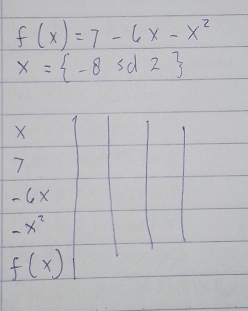 f(x) = 7 - 6x - x²
x = {-8 sd 2}
x
7
-6x
-x²
f(x)